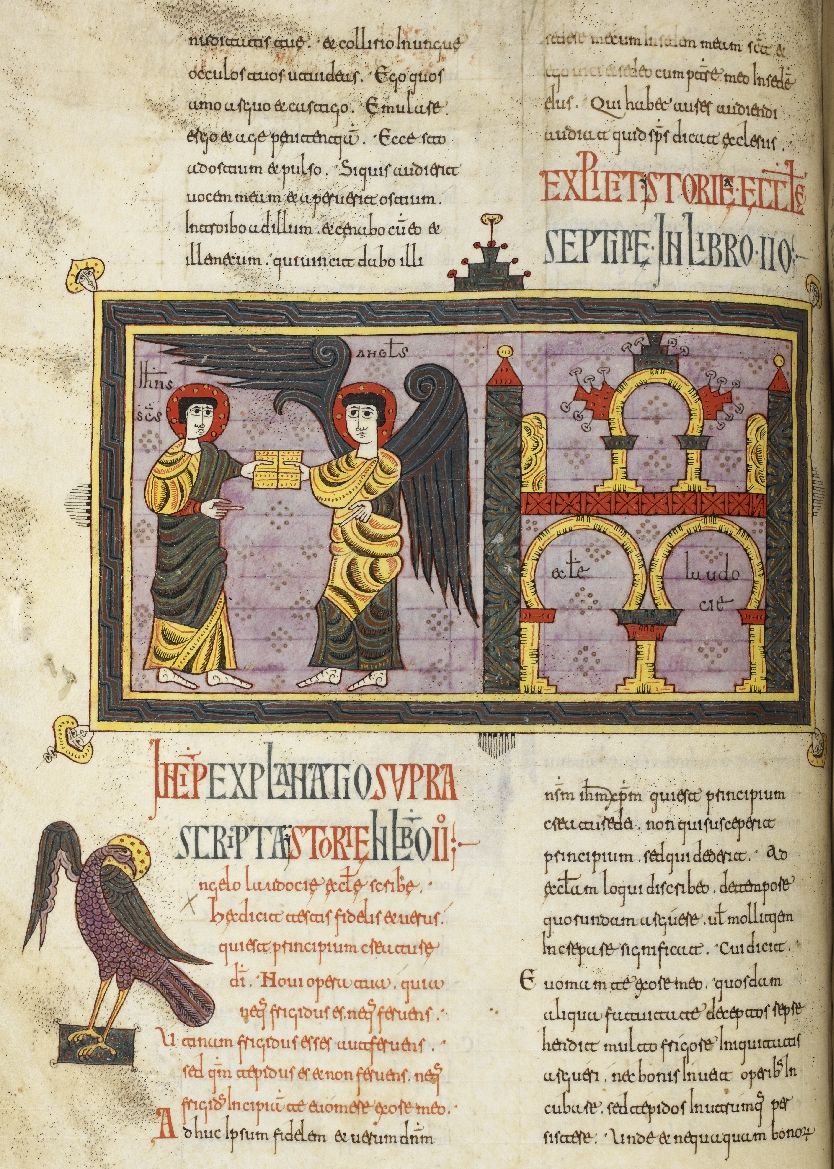 nuditatis tue. & collirio Inungue
occulos tuos ut uideas. Ego quos
amo arguo & castigo. Emulare
ergo & age penitentiā. Ecce sto
ad ostium & pulso. Si quis audierit
uocem meam & aperuerit ostium.
Introibo ad illum. & cenabo cū eo &
ille mecum. qui uincit dabo illi
sedere mecum In solium meum
ego uici & sedeo cum patre meo In sede
eius. Qui habet aures audiendi
audiat quid sp̄s dicat eclesiis
EXPLICIT STORIE ECCLE
SEPTIME IN LIBRO IIO
ihns
scs
angls
ecle
laudo
cie
INCIP EXPLANATIO SUPRA
SCRIPTA STORIE IN LBO II
ngelo laudocie ecle scribe.
hec dicit testis fidelis & uerus.
qui est principium creature
di. Noui opera tua. quia
neq frigidus es. neq feruens.
Utinam frigidus esses aut feruens.
sed qm tepidus es & non feruens. neq
frigidus Incipiā te euomere ex ore meo.
Adhuc Ipsum fidelem & uerum dnm
nsm ihm xpm qui est principium
creature dei. non qui susceperit
principium. sed qui dederit. Ad
eclam loqui describeo. de tempore
quorundam arguere. ut mollitiem
Increpare significat. Cui dicit.
Euomam te ex ore meo. quosdam
aliqua
multo frigore Iniquitatis
argueri. nec bonis Inuent operib In
cubare. sed tepidos In utrumq per
sistere. Unde & nequaquam bonor